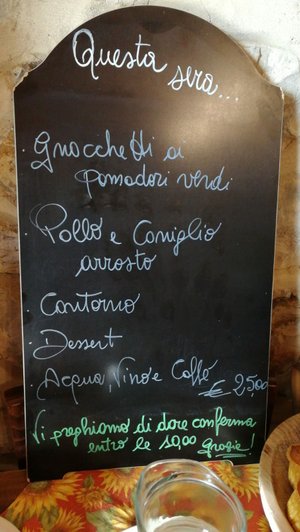 Questa sera...
· Gnocchetti ai
pomodori verdi
· Pollo e Coniglio
arrosto
· Contorno
· Dessert
· Acqua, Vino e Caffè
€ 25,00
Vi preghiamo di dare conferma
entro le 10,00 grazie!